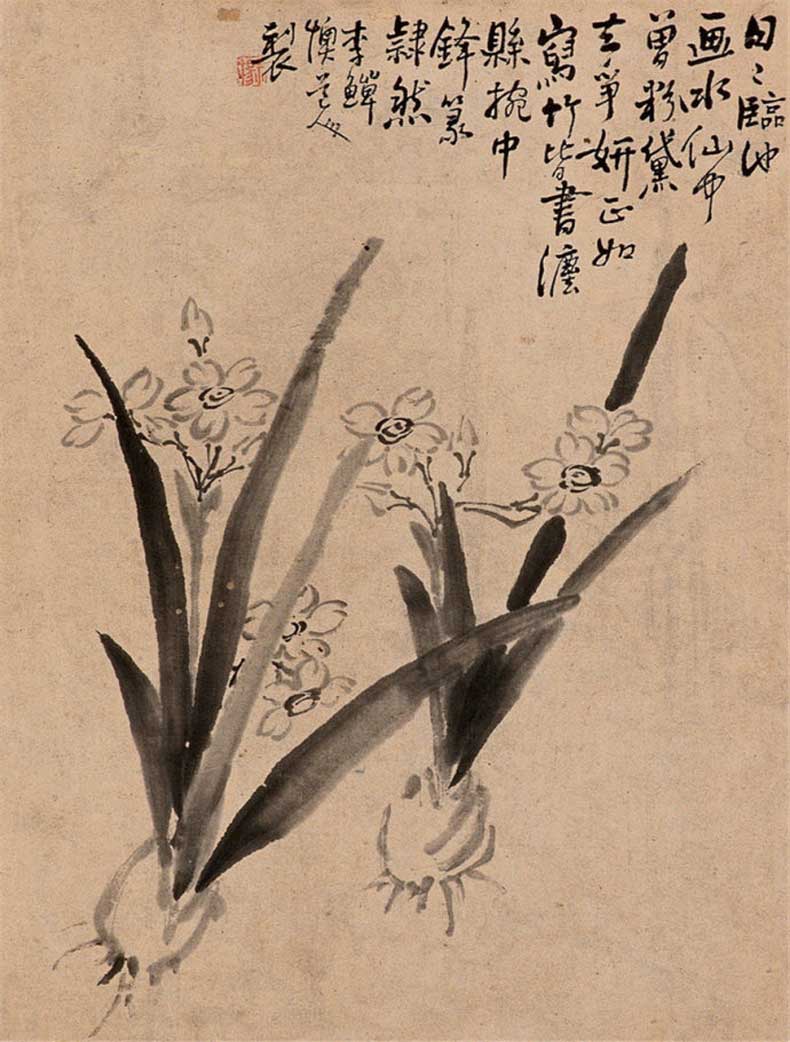 日〻臨池
画水仙何
曾粉黛
去爭妍正如
寫竹皆書灋
縣捥中
鋒篆
隸然
李鱓
懊道人
製